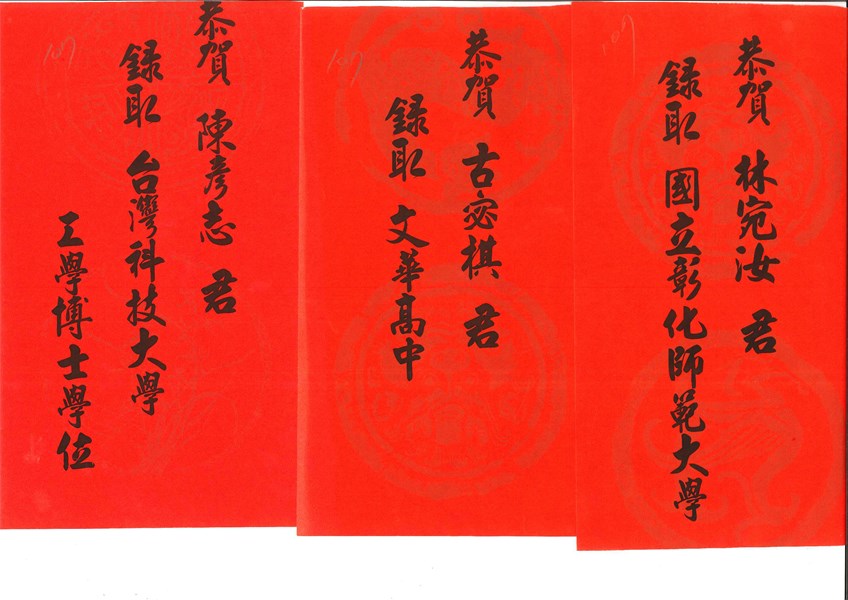 恭賀 林宛汝 君
錄取 國立彰化師範大學
107
恭賀 古宓棋 君
錄取 文華高中
107
恭賀 陳彥志 君
錄取 台灣科技大學
工學博士學位
107